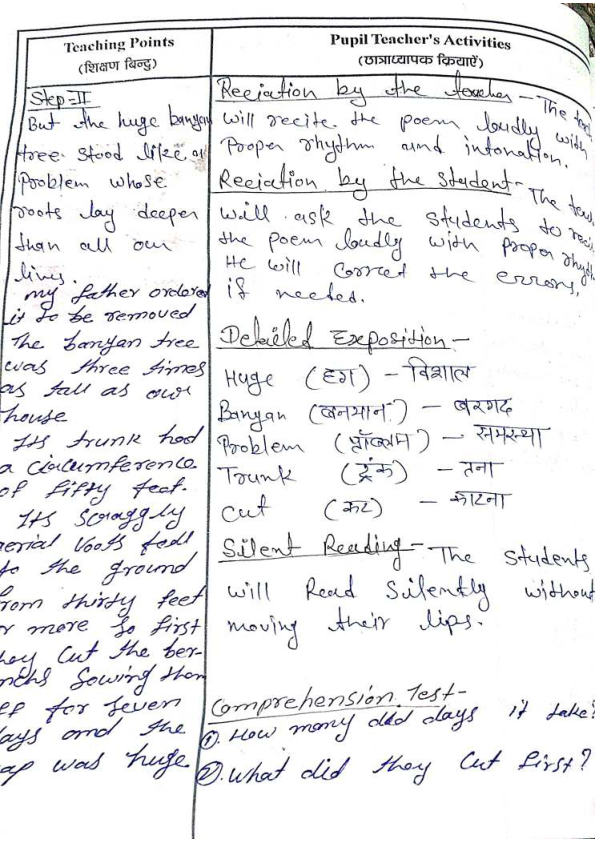 Teaching Points
(शिक्षण बिन्दु)
Step-II
But the huge banyan
tree stood like a
Problem whose
roots lay deeper
than all our
lives.
my father ordered
it to be removed
The banyan tree
was three times
as tall as our
house
Its trunk had
a ciacumference
of fifty feet.
Its scraggly
aerial roots fell
to the ground
from thirty feet
or more so first
they cut the ber-
nchs sowing them
off for seven
days and the
eap was huge
Pupil Teacher's Activities
(छात्राध्यापक क्रियाऐं)
Reciation by the teacher - The
will recite the poem loudly with
Proper rhythm and intonation.
Reciation by the student - The
will ask the students to
the poem loudly with proper
He will correct the errors,
if needed.
Detailed Exeposition -
Huge (हग) - विशाल
Banyan (बनयान) - बरगद
Problem (प्रॉब्लम) - समस्या
Trunk (ट्रंक) - तना
cut (कट) - काटना
Silent Reading - The students
will Read Silently without
moving their lips.
Comprehension Test -
①. How many did days it take?
②. What did they cut first?